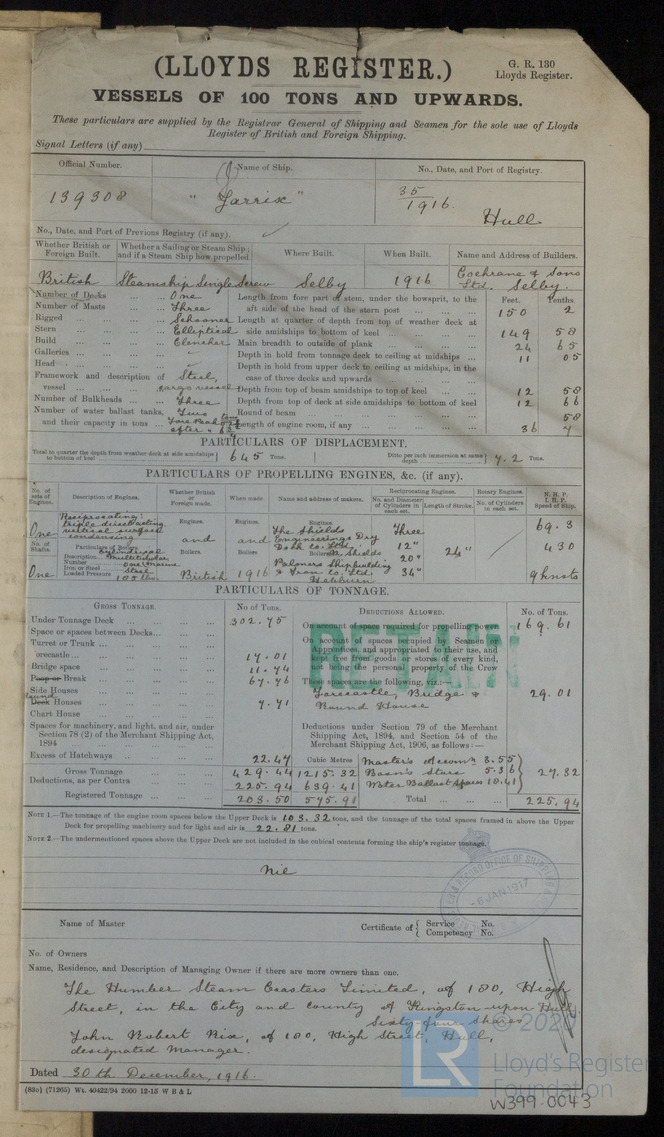 (LLOYDS REGISTER.)
G. R. 130
Lloyds Register.
VESSELS OF 100 TONS AND UPWARDS.
These particulars are supplied by the Registrar General of Shipping and Seamen for the sole use of Lloyds
Register of British and Foreign Shipping.
Signal Letters (if any)
Official Number. Name of Ship. No., Date, and Port of Registry.
139308 "Jarrix" 35/1916. Hull
No., Date, and Port of Previous Registry (if any).
Whether British or Foreign Built. Whether a Sailing or Steam Ship; and if a Steam Ship how propelled Where Built. When Built. Name and Address of Builders.
British Steamship Single Screw Selby 1916 Cochrane & Sons Ltd. Selby.
Number of Decks One
Number of Masts Three
Rigged Schooner
Stern Elliptical
Build Clencher
Galleries
Head
Framework and description of vessel Steel, cargo vessel
Number of Bulkheads Three
Number of water ballast tanks, and their capacity in tons Two
Feet. Tenths.
Length from fore part of stem, under the bowsprit, to the aft side of the head of the stern post 150 2
Length at quarter of depth from top of weather deck at side amidships to bottom of keel 149 58
Main breadth to outside of plank 24 65
Depth in hold from tonnage deck to ceiling at midships 11 05
Depth in hold from upper deck to ceiling at midships, in the case of three decks and upwards
Depth from top of beam amidships to top of keel 12 58
Depth from top of deck at side amidships to bottom of keel 12 66
Round of beam 58
Length of engine room, if any 36 7
PARTICULARS OF DISPLACEMENT.
Total to quarter the depth from weather deck at side amidships to bottom of keel 645 Tons. Ditto per inch immersion at same depth 7.2 Tons.
PARTICULARS OF PROPELLING ENGINES, &c. (if any).
No. of sets of Engines. Description of Engines. Whether British or Foreign made. When made. Name and address of makers. Reciprocating Engines. Rotary Engines. N.H.P. I.H.P. Speed of Ship.
No. and Diameter of Cylinders in each set. Length of Stroke. No. of Cylinders in each set.
One Reciprocating: triple direct acting vertical surface condensing
Engines. and Engines. and Engines. The Shields Engineering Dry Dock Co. Ltd. Three 12" 20" 34" 24" 69.3
No. of Shafts. Particulars of Boilers. Boilers. Boilers Boilers. 430
Description Cylindrical multitubular
Number one marine
Iron or Steel Steel
One Loaded Pressure British 1916 Palmers Shipbuilding & Iron Co. Ltd. Hebburn 9 knots
PARTICULARS OF TONNAGE.
GROSS TONNAGE. No. of Tons. DEDUCTIONS ALLOWED. No. of Tons.
Under Tonnage Deck 302.75
Space or spaces between Decks
Turret or Trunk
orecastle 17.01
Bridge space 11.74
Poop or Break 67.76
Side Houses
Round Deck Houses 7.71
Chart House
Spaces for machinery, and light, and air, under Section 78 (2) of the Merchant Shipping Act, 1894
Excess of Hatchways 22.47
Cubic Metres
Gross Tonnage 429.44 1215.32
Deductions, as per Contra 225.94 639.41
Registered Tonnage 203.50 575.91
On account of space required for propelling power 169.61
On account of spaces occupied by Seamen or Apprentices, and appropriated to their use, and kept free from goods or stores of every kind, not being the personal property of the Crew
These spaces are the following, viz.:—
Forecastle, Bridge & Round House 29.01
Deductions under Section 79 of the Merchant Shipping Act, 1894, and Section 54 of the Merchant Shipping Act, 1906, as follows:—
Master's Accomn 3.55
Bosn's Stores 5.36
Water Ballast Spaces 18.41
27.32
Total 225.94
RETAIN
NOTE 1.—The tonnage of the engine room spaces below the Upper Deck is 103.32 tons, and the tonnage of the total spaces framed in above the Upper
Deck for propelling machinery and for light and air is 22.81 tons.
NOTE 2.—The undermentioned spaces above the Upper Deck are not included in the cubical contents forming the ship's register tonnage.
Nil
-6 JAN 1917
Name of Master
Certificate of Service No. Competency No.
No. of Owners
Name, Residence, and Description of Managing Owner if there are more owners than one.
The Humber Steam Coasters Limited, of 180, High
Street, in the City and County of Kingston-upon-Hull,
Sixty-four Shares
John Robert Rix, of 180, High Street, Hull,
designated Manager.
Dated 30th December, 1916.
(83o) (71265) Wt. 40422/94 2000 12-15 W B & L
© 2020
LR
Lloyd's Register
Foundation
W399-0043